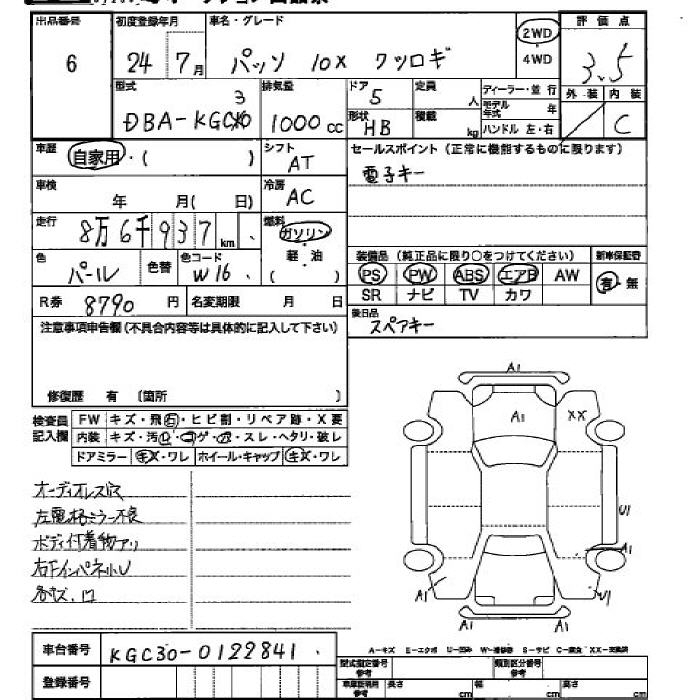 出品番号 初度登録年月 車名・グレード 2WD 評価点
6 24 7月 パッソ 10X クツロギ 4WD 3.5
型式 排気量 ドア 定員 ディーラー・並行 外装 内装
3 5 人 モデル年式 年
DBA-KGC30 1000cc 形状 HB 積載 kg ハンドル 左・右 C
車歴 自家用・( ) シフト AT セールスポイント(正常に機能するものに限ります)
車検 年 月(日) 冷房 AC 電子キー
走行 8万6千937km 燃料 ガソリン 軽・油 ( )
色 パール 色替 色コード W16 装備品(純正品に限り○をつけてください) 新車保証書
PS PW ABS エアB AW 有・無
R券 8790円 名変期限 月 日 SR ナビ TV カワ
注意事項申告欄(不具合内容等は具体的に記入して下さい) 後日品 スペアキー
修復歴 有 〔箇所 〕
検査員記入欄 FW キズ・飛石・ヒビ割・リペア跡・X要
内装 キズ・汚・コゲ・穴・スレ・ヘタリ・破レ
ドアミラー キズ・ワレ ホイール・キャップ キズ・ワレ
A1
A1 XX
オーディオレス穴
左電格ミラー不良 U1
ボディ付着物アリ A1
右FインパネU
各キズ、凹 A1 U1
A1 A1
車台番号 KGC30-0122841
A-キズ E-エクボ U-凹み W-補修跡 S-サビ C-腐食 XX-交換済
登録番号 型式指定番号 参考 類別区分番号 参考
車庫証明用 参考 長さ cm 幅 cm 高さ cm